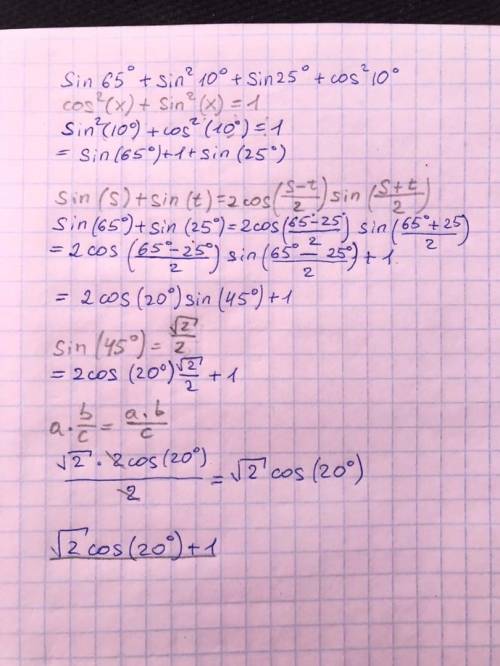 Sin 65° + sin² 10° + Sin 25° + cos² 10°
cos²(x) + sin²(x) = 1
Sin²(10°) + cos²(10°) = 1
= Sin(65°) + 1 + sin(25°)
Sin(s) + sin(t) = 2cos((s-t)/2) sin((s+t)/2)
Sin(65°) + sin(25°) = 2cos((65°-25)/2) sin((65°+25)/2)
= 2cos((65°-25°)/2) sin((65°-25°)/2) + 1
= 2cos(20°) sin(45°) + 1
Sin(45°) = √2/2
= 2cos(20°) √2/2 + 1
a · b/c = a·b/c
√2 · 2cos(20°)/2 = √2 cos(20°)
√2 cos(20°) + 1